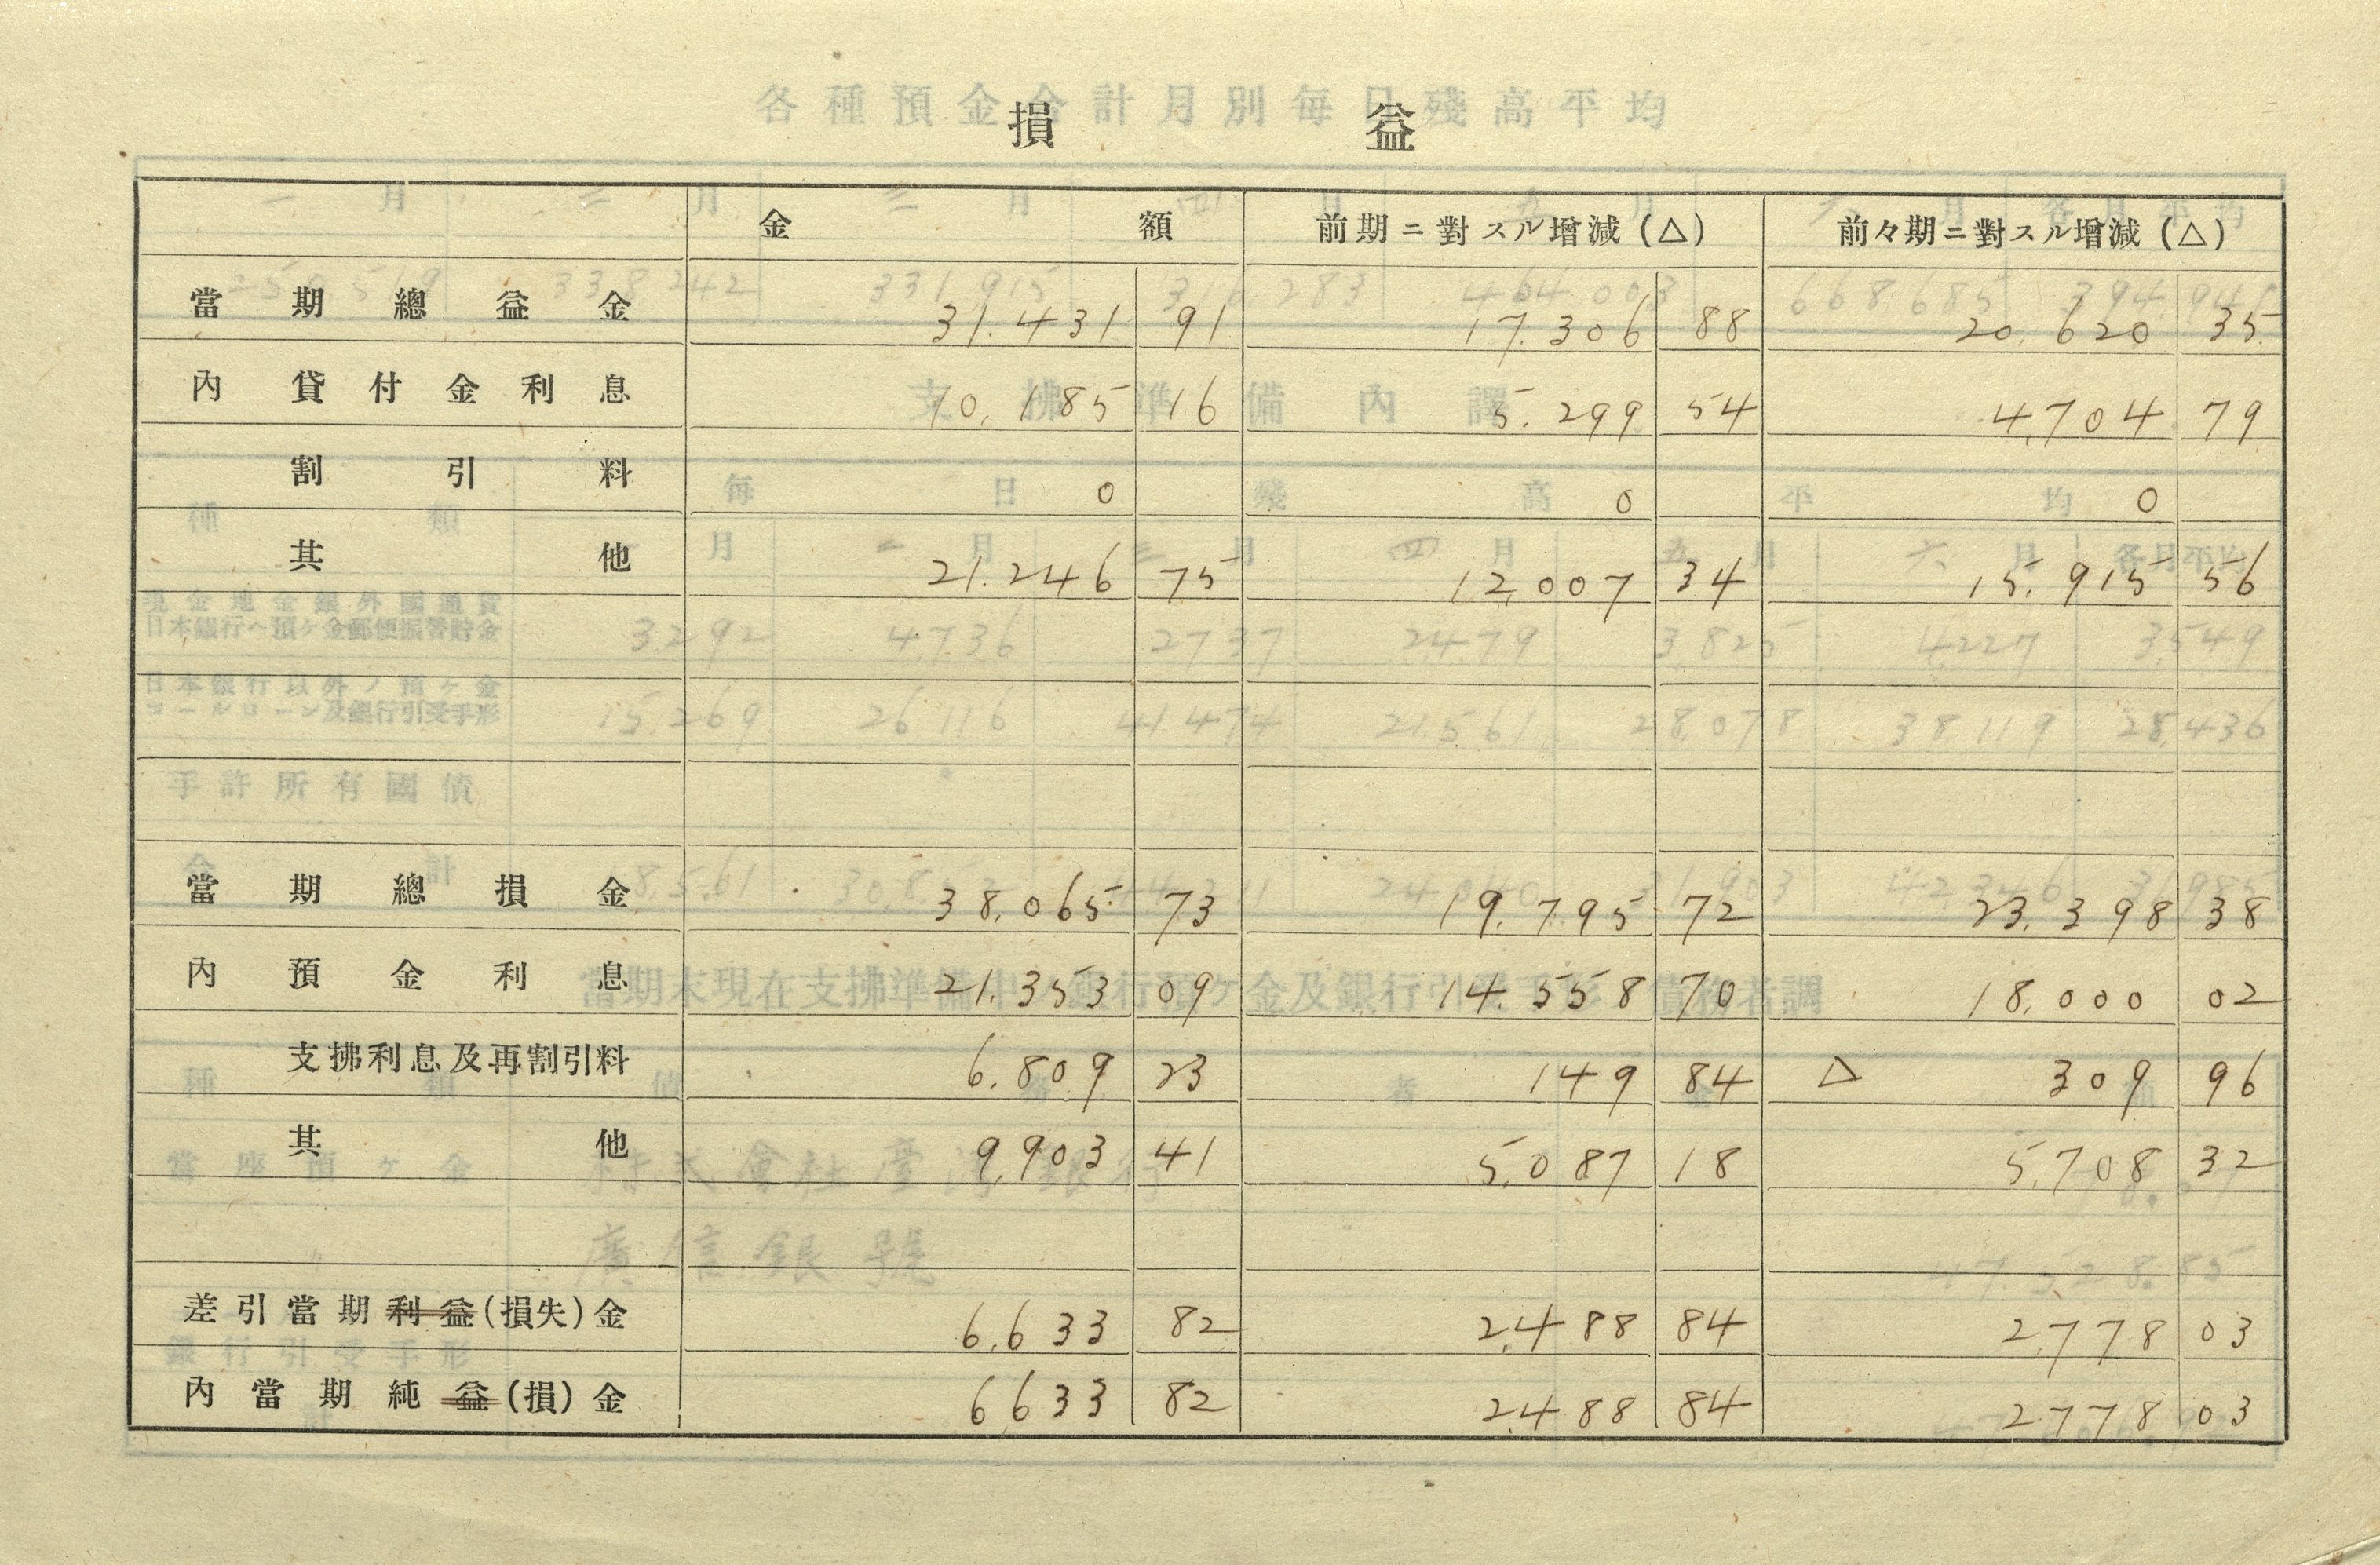 損 益
金 額 前期ニ對スル増減(△) 前々期ニ對スル増減(△)
當期總益金 31.431 91 17.306 88 20.620 35
內 貸付金利息 10.185 16 5.299 54 4.704 79
割引料 0 0 0
其他 21.246 75 12.007 34 15.915 56
當期總損金 38.065 73 19.795 72 23.398 38
內 預金利息 21.353 09 14.558 70 18.000 02
支拂利息及再割引料 6.809 23 149 84 △ 309 96
其他 9.903 41 5.087 18 5.708 32
差引當期利益(損失)金 6.633 82 2.488 84 2.778 03
內當期純益(損)金 6.633 82 2.488 84 2.778 03